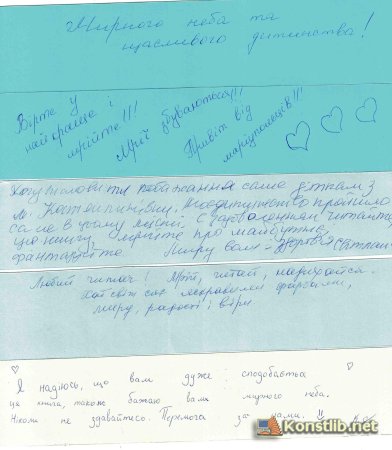 Мирного неба та
щасливого дитинства!
Вірте у
найкраще і
мрійте!!!
Мрії збуваються!!!
Привіт від
маріупольців!!!
Хочу
побажання саме діткам з
м. Костянтинівки.
саме в цьому місті. З задоволенням читайте
цю книгу, мрійте про майбутнє,
фантазуйте. Миру вам
Любий читач! Мрій, читай, надихайся.
Хай світ сяє яскравими фарбами,
миру, радості, віри
Я надіюсь, що вам дуже сподобається
ця книга, також бажаю вам мирного неба.
Ніколи не здавайтесь. Перемога за нами. !!
Konstlib.net